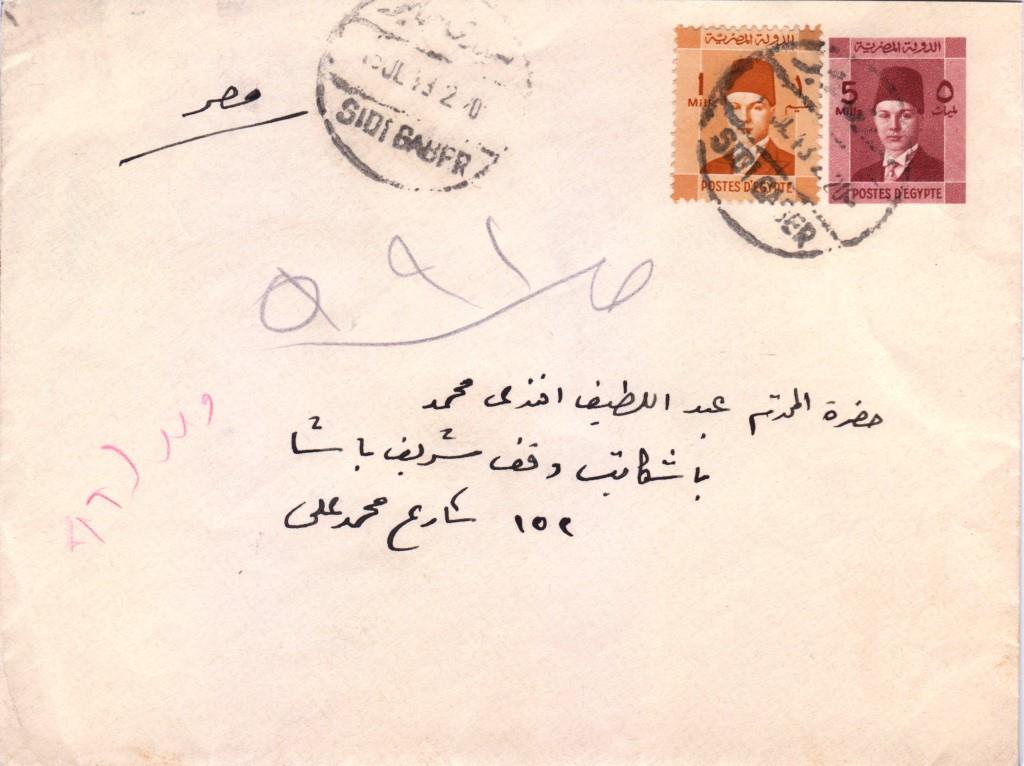 مصر
15 JL 43 2
SIDI GABER
الدولة المصرية
1 ١
Mill. مليم
POSTES D'EGYPTE
الدولة المصرية
5 ٥
Mills مليمات
POSTES D'EGYPTE
JL 43 2
SIDI GABER
حضرة المحترم عبد اللطيف افندى محمد
باشكاتب وقف شريف باشا
١٥٢ شارع محمد على